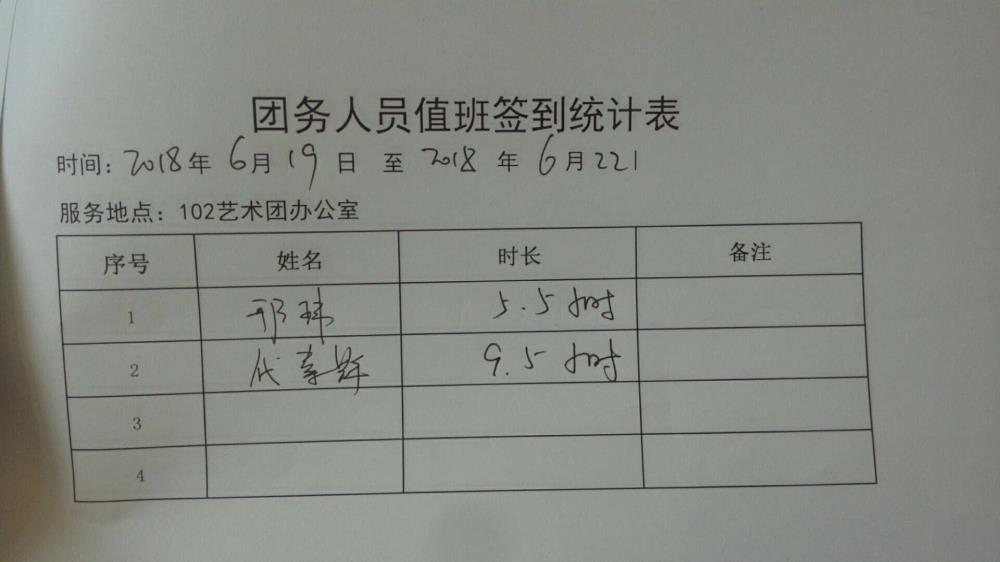 团务人员值班签到统计表
时间：2018年 6月 19日 至 2018 年 6月221
服务地点：102艺术团办公室
序号 姓名 时长 备注
1 邢玮 5.5 小时
2 代 9.5 小时
3
4